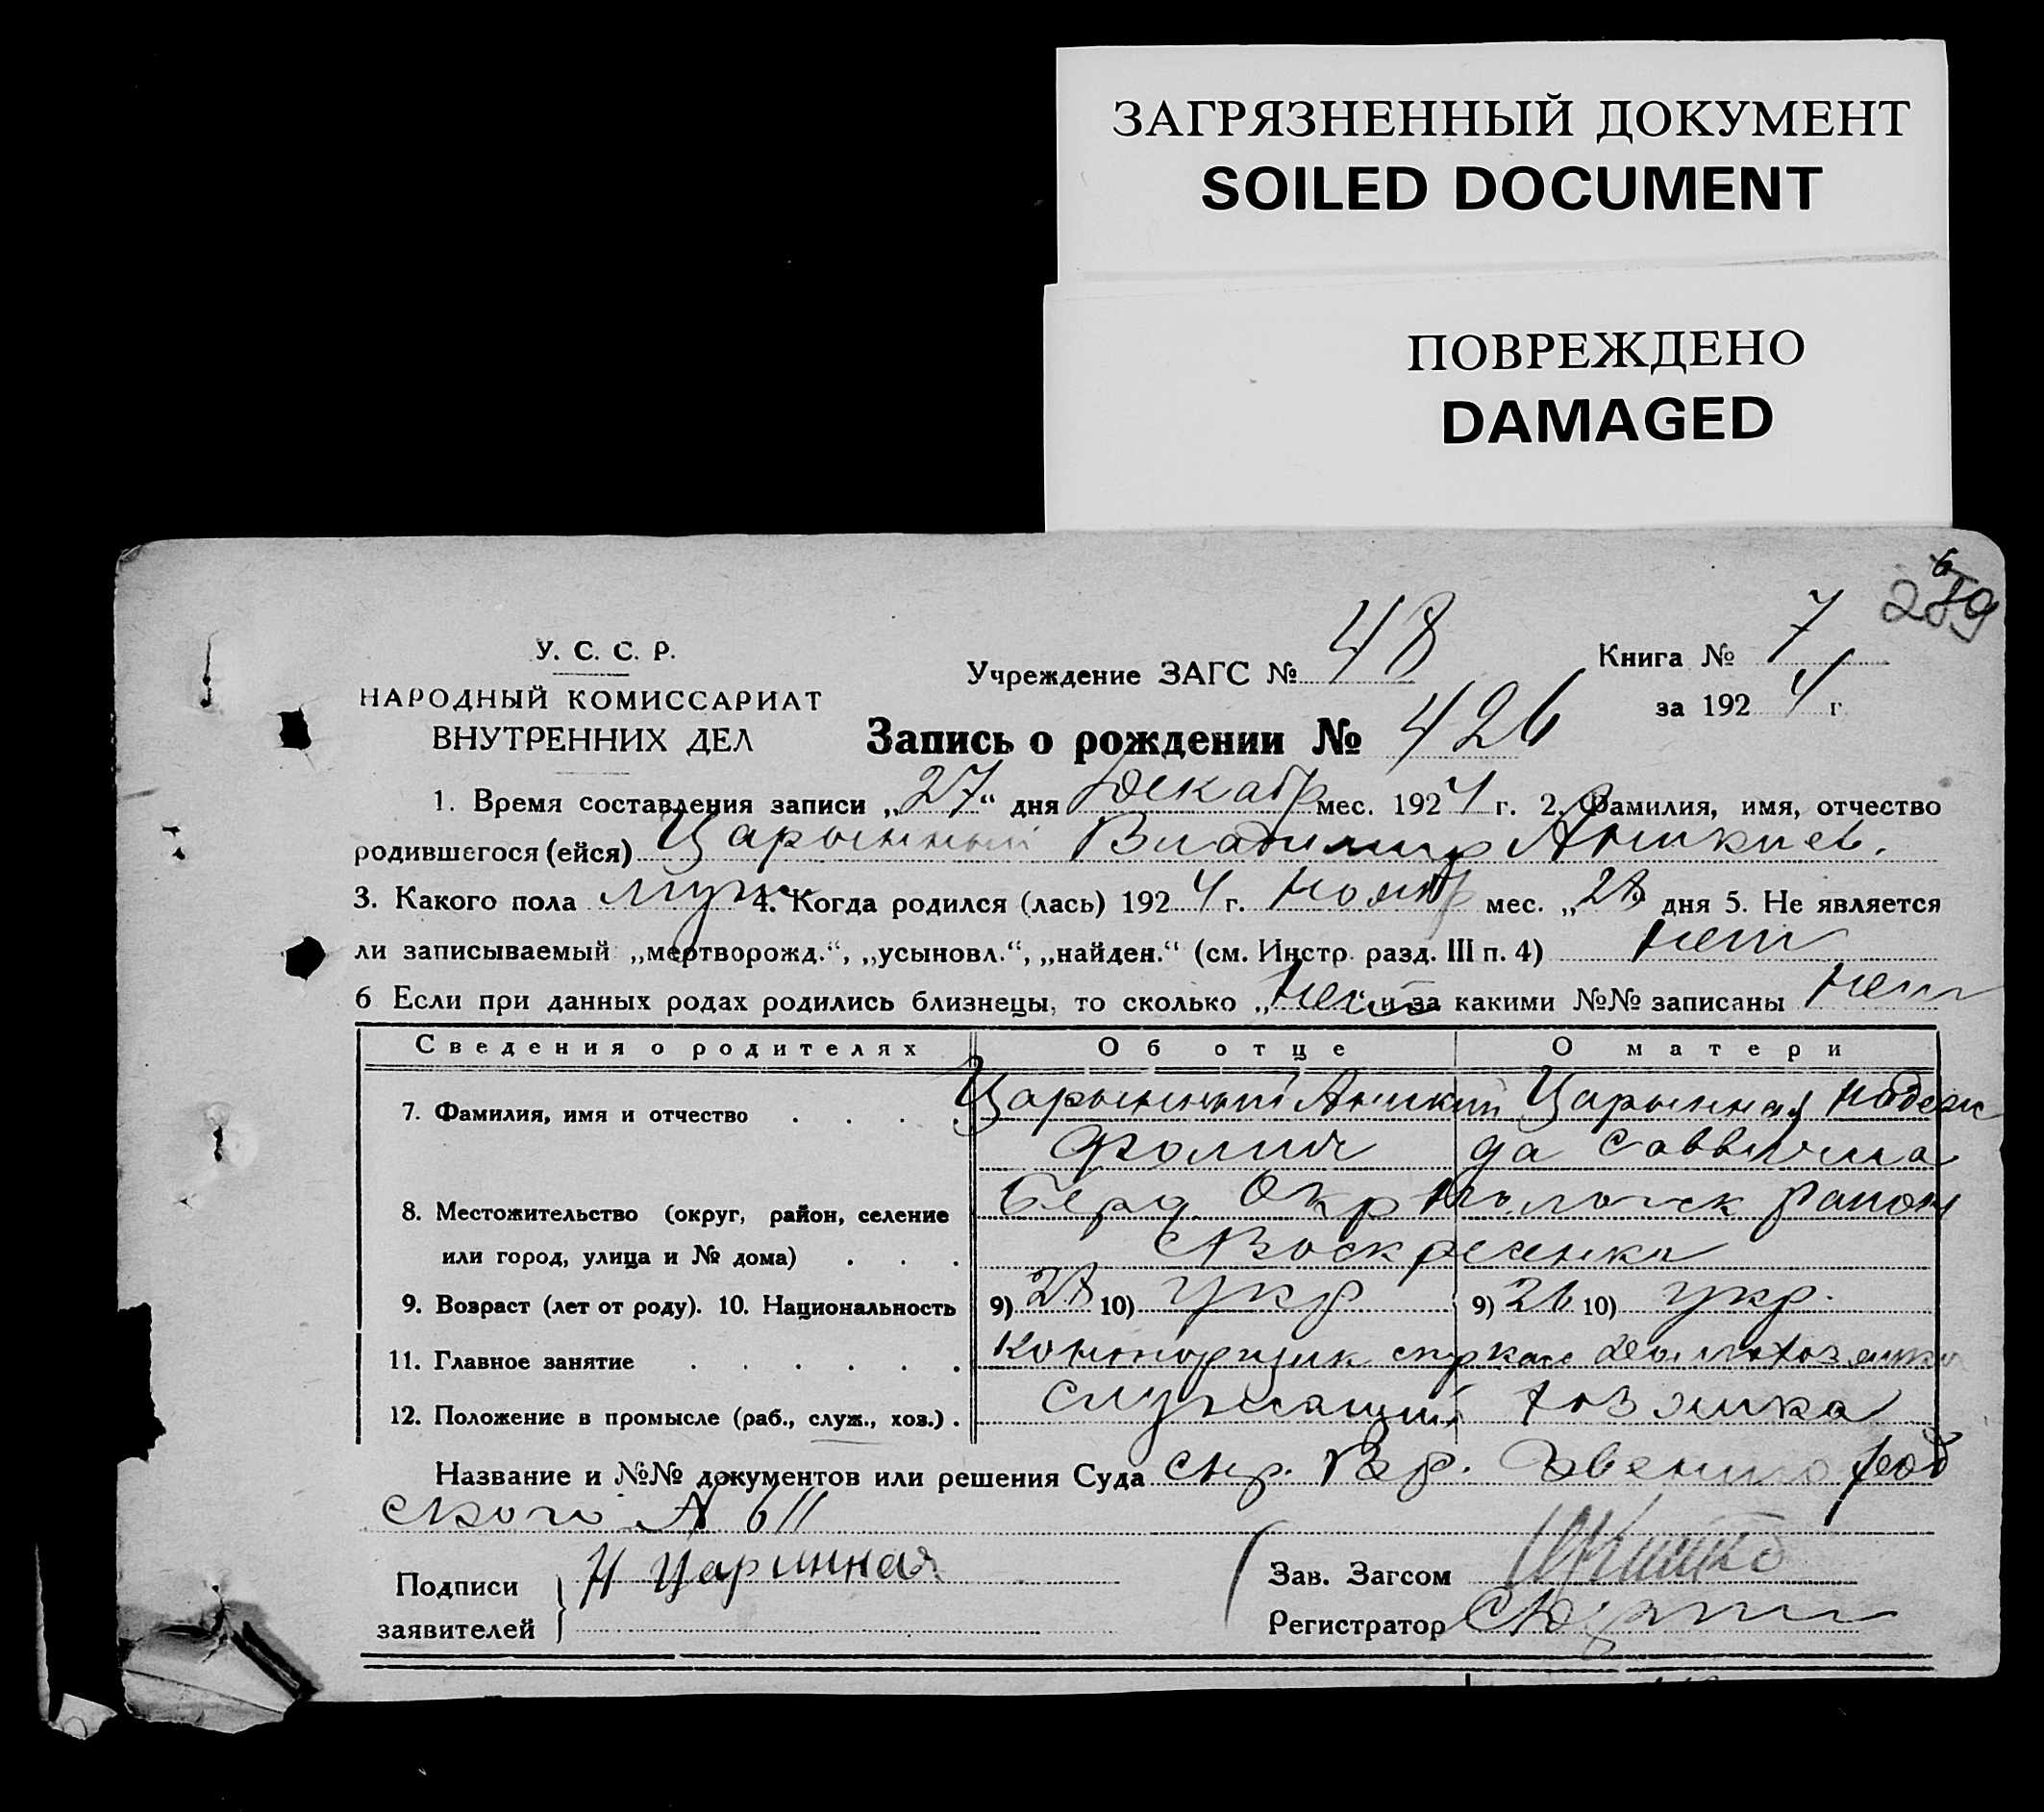 ЗАГРЯЗНЕННЫЙ ДОКУМЕНТ
SOILED DOCUMENT
ПОВРЕЖДЕНО
DAMAGED
У. С. С. Р.
НАРОДНЫЙ КОМИССАРИАТ
ВНУТРЕННИХ ДЕЛ
Учреждение ЗАГС № 48
Книга № 7
за 1924 г
Запись о рождении № 426
1. Время составления записи „27“ дня Декабр мес. 1924 г. 2. Фамилия, имя, отчество
родившегося (ейся) Царынный Владимир Аникиев.
3. Какого пола муж 4. Когда родился (лась) 1924 г. Ноябр мес. „28 дня 5. Не является
ли записываемый „мертворожд.“, „усыновл.“, „найден.“ (см. Инстр. разд. III п. 4) нет
6 Если при данных родах родились близнецы, то сколько „нет“ и за какими №№ записаны нет
Сведения о родителях Об отце О матери
7. Фамилия, имя и отчество . . . Царынный Аникий Царынная Надеж
Фомич да Саввична
8. Местожительство (округ, район, селение Берд Окр район
или город, улица и № дома) . . . Воскресенка
9. Возраст (лет от роду). 10. Национальность 9) 28 10) укр 9) 26 10) укр.
11. Главное занятие . . . . . . конторщик домохозяйка
12. Положение в промысле (раб., служ., хоз.) . служащий хозяйка
Название и №№ документов или решения Суда спр. Вр.
ского № 611
Подписи
заявителей
Н Царинная
Зав. Загсом
Регистратор